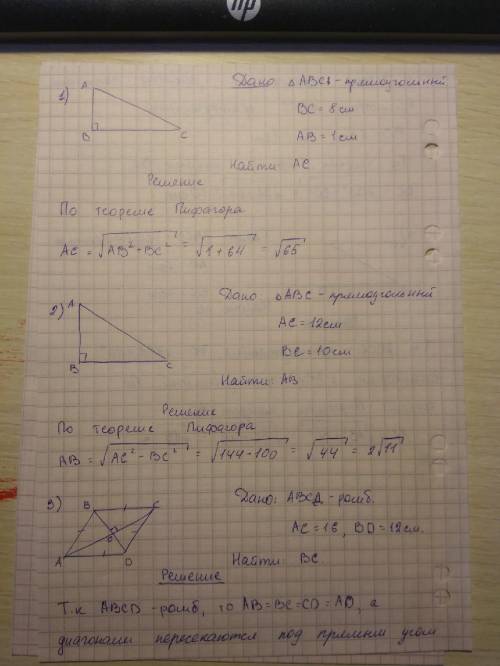 hp
1)
A
B
C
Дано △ABC - прямоугольный
BC = 8 см
AB = 1 см
Найти AC
Решение
По теореме Пифагора
AC = √(AB² + BC²) = √(1 + 64) = √65
2)
A
B
C
Дано △ABC - прямоугольный
AC = 12 см
BC = 10 см
Найти: AB
Решение
По теореме Пифагора
AB = √(AC² - BC²) = √(144 - 100) = √44 = 2√11
3)
B
C
A
D
Дано: ABCD - ромб.
AC = 16, BD = 12 см.
Найти BC
Решение
Т.к ABCD - ромб, то AB = BC = CD = AD, а
диагонали пересекаются под прямым углом